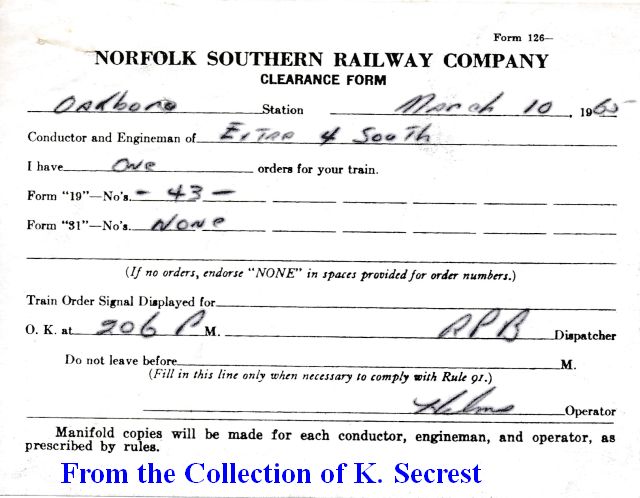 Form 126—
NORFOLK SOUTHERN RAILWAY COMPANY
CLEARANCE FORM
Oakboro Station March 10, 1965
Conductor and Engineman of Extra 4 South
I have One orders for your train.
Form "19"—No's. - 43 -
Form "31"—No's. None
(If no orders, endorse "NONE" in spaces provided for order numbers.)
Train Order Signal Displayed for
O. K. at 206 P M. RPB Dispatcher
Do not leave before M.
(Fill in this line only when necessary to comply with Rule 91.)
Helms Operator
Manifold copies will be made for each conductor, engineman, and operator, as
prescribed by rules.
From the Collection of K. Secrest